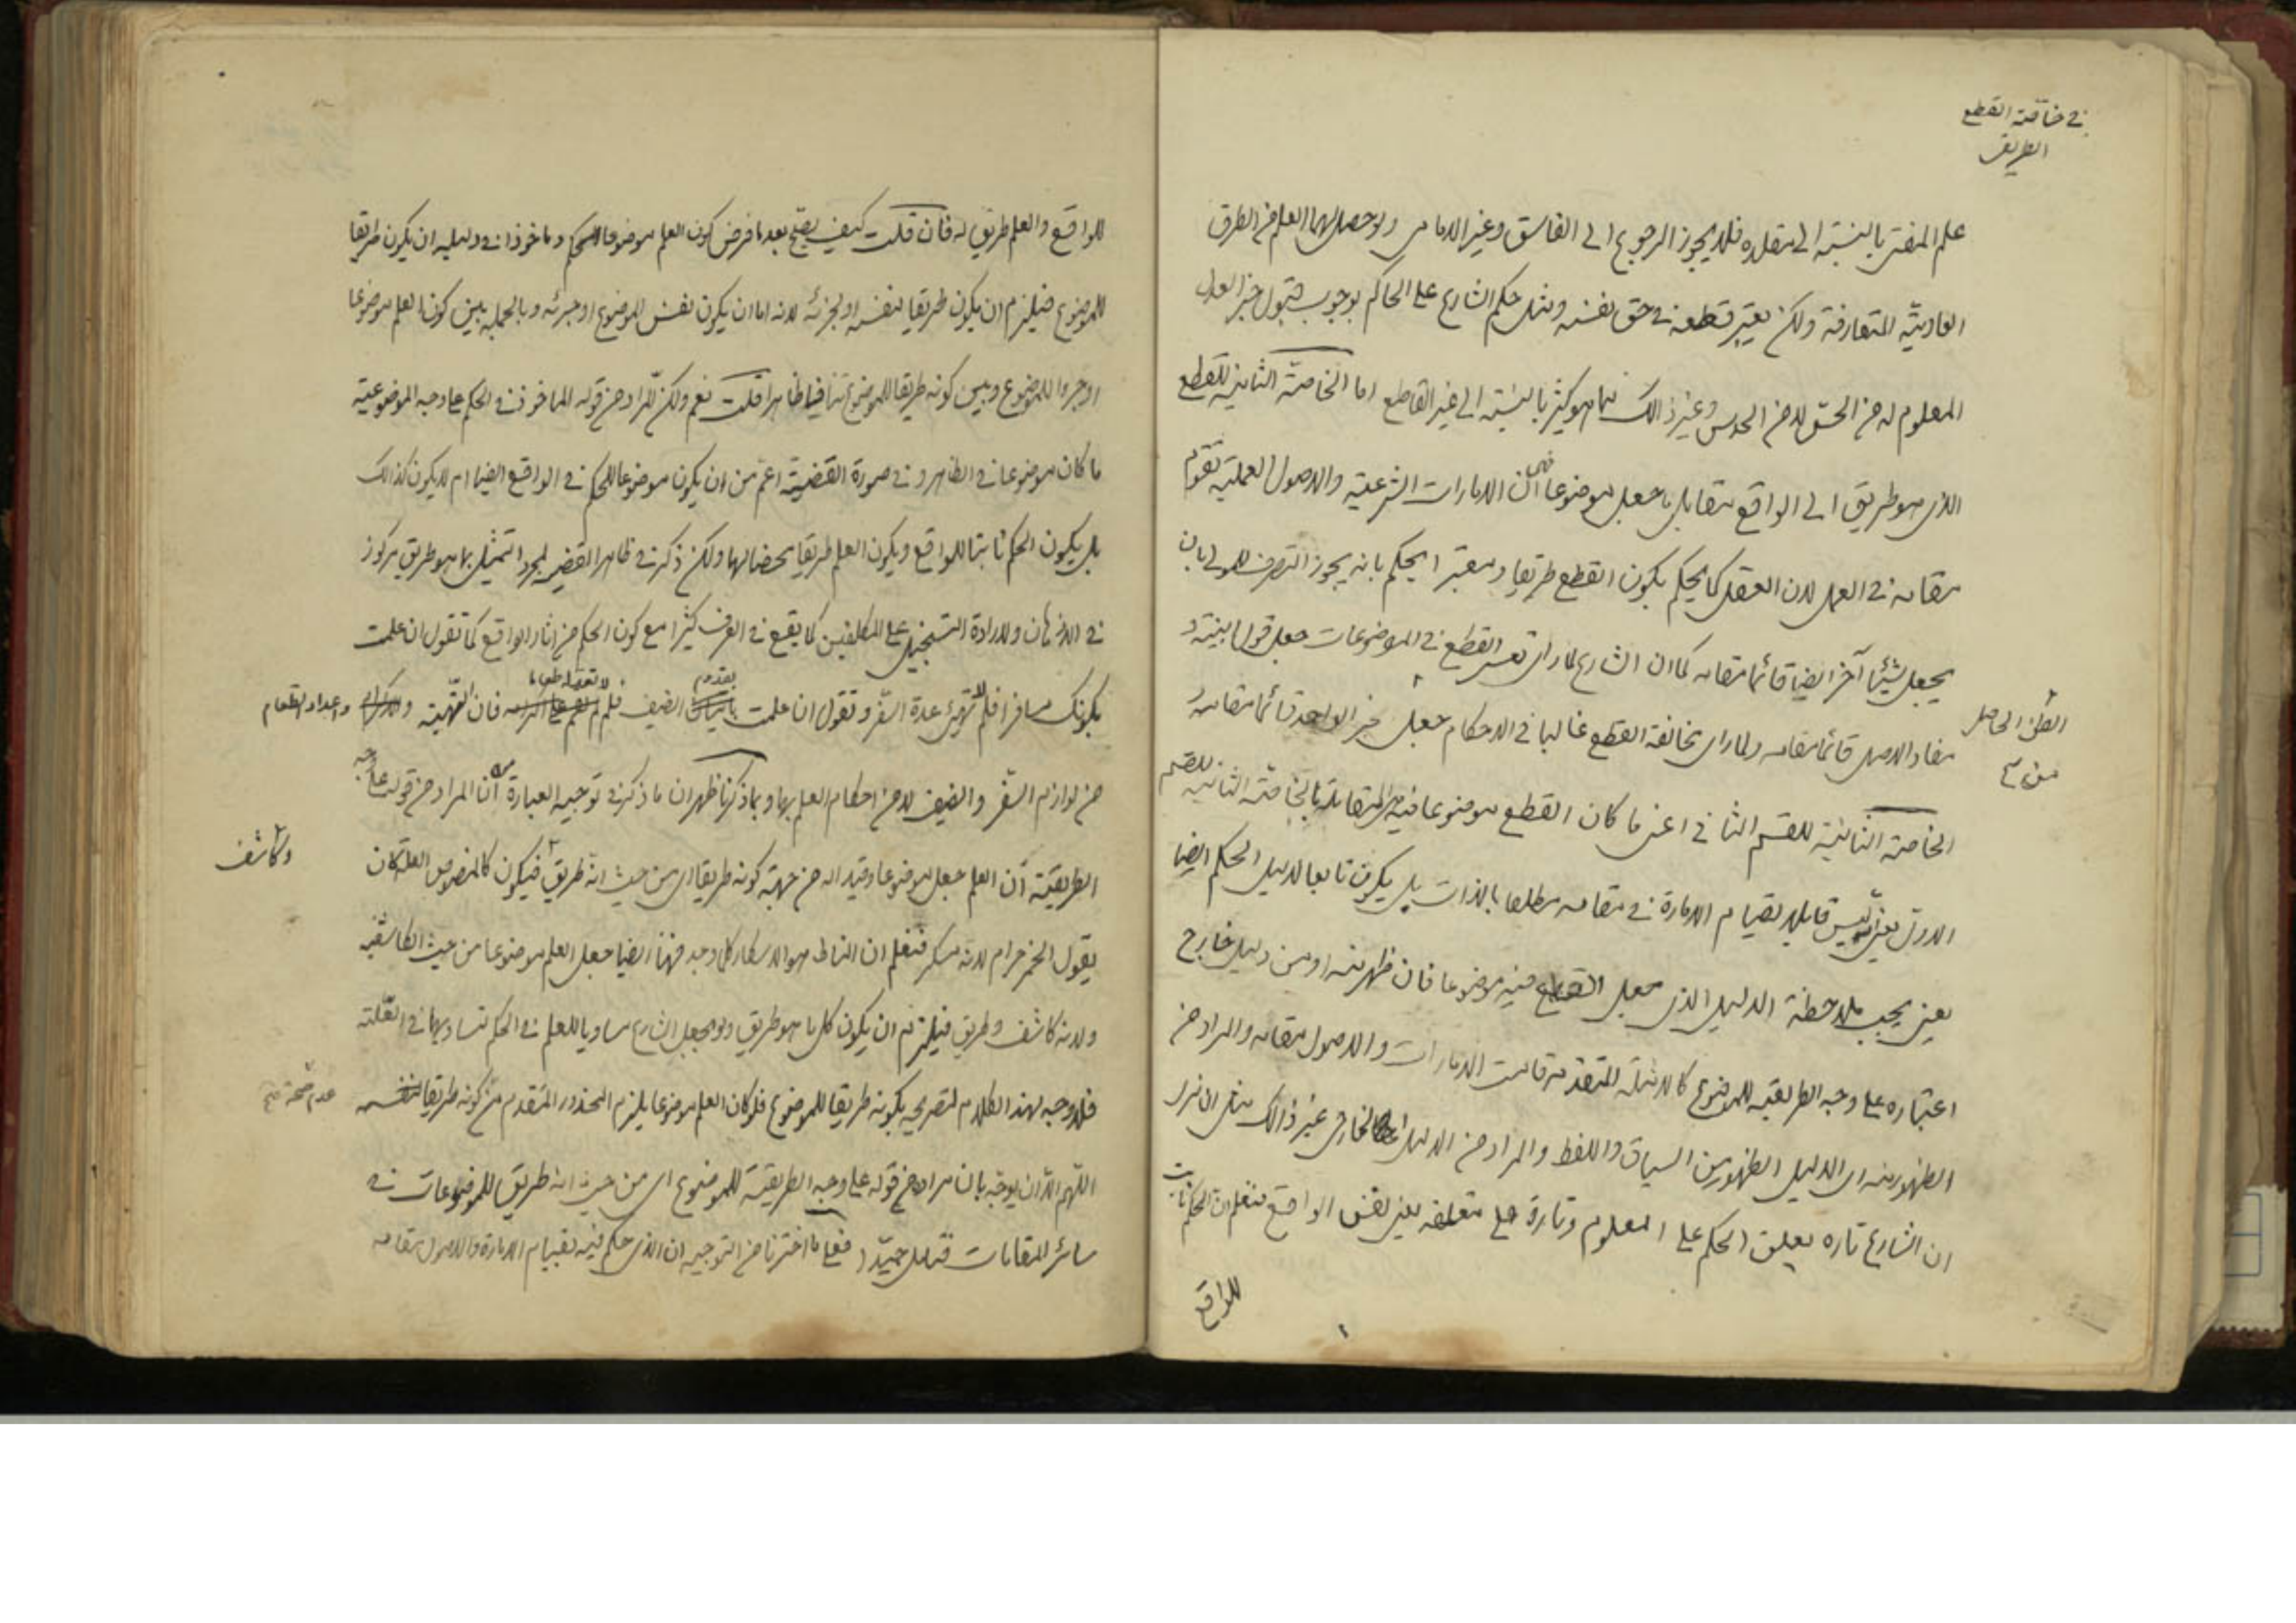 في خاصة القطع
الطريق
علم المفتى بالنسبة الى مقلده فلا يجوز الرجوع الى الفاسق وغير الامامى ولو حصل لهما العلم من الطرق
العادية المتعارفة ولكن يعتبر قطعه في حق نفسه ومثل حكم الشارع على الحاكم بوجوب قبول خبر العدل
المعلوم له من الحس لا من الحدس وغير ذالك مما هو كثير بالنسبة الى غير القاطع اما الخاصة الثانية للقطع
الذى هو طريق الى الواقع مقابل ما جعل موضوعا ان الامارات الشرعية والاصول العملية تقوم
مقامه في العمل لان العقل كما يحكم بكون القطع طريقا ومعتبرا يحكم بانه يجوز التصرف للمولى بان
يجعل شيئا آخر ايضا قائما مقامه كما ان الشارع لما راى تعسر القطع في الموضوعات جعل قول البينة و
مفاد الاصل قائما مقامه ولما راى مخالفة القطع غالبا في الاحكام جعل خبر الواحد قائما مقامه و
الظن الحاصل
منه
الخاصة الثانية للقسم الثانى اعنى ما كان القطع موضوعا فيه المقابلة بالخاصة الثانية للقسم
الاول يعنى ليس قابلا لقيام الامارة في مقامه مطلقا بالذات بل يكون تابعا لدليل الحكم ايضا
يعنى يجب ملاحظة الدليل الذى جعل القطع فيه موضوعا فان ظهر منه او من دليل خارج
اعتباره على وجه الطريقية للموضوع كالامثلة المتقدمة قامت الامارات والاصول مقامه والمراد من
الظهور منه اى الدليل الظهور من السياق واللفظ والمراد من الدليل الخارجى غير ذالك مثل ان نرى
ان الشارع تاره يعلق الحكم على المعلوم وتارة على متعلقه يعنى نفس الواقع فنعلم ان الحكم ثابت
للواقع
للواقع والعلم طريق له فان قلت كيف يصح بعد ما فرض كون العلم موضوعا للحكم وماخوذا في دليله ان يكون طريقا
للموضوع فيلزم ان يكون طريقا لنفسه او لجزئه لانه اما ان يكون نفس الموضوع او جزئه وبالجملة بين كون العلم موضوعا
او جزءا للموضوع وبين كونه طريقا للموضوع تنافيا ظاهرا قلت نعم ولكن المراد من قوله الماخوذ في الحكم على وجه الموضوعية
ما كان موضوعا في الظاهر و في صورة القضية اعم من ان يكون موضوعا للحكم في الواقع ايضا ام لا يكون كذالك
بل يكون الحكم ثابتا للواقع ويكون العلم طريقا محضا لها ولكن ذكر في ظاهر القضية لمجرد التمثيل بما هو طريق مركوز
في الاذهان ولارادة التسجيل على المكلفين كما يقع في العرف كثيرا مع كون الحكم من اثار الواقع كما تقول ان علمت
بكونك مسافرا فلم لا تهيئ عدة السفر و تقول ان علمت بقدوم الضيف فلم لا فان التهيئة واعداد الطعام
من لوازم السفر والضيف لا من احكام العلم بها وبما ذكرنا ظهر ان ما ذكر في توجيه العبارة من ان المراد من قوله على وجه
الطريقية ان العلم جعل موضوعا وقيدا له من جهة كونه طريقا اى من حيث انه طريق وكاشف فيكون كالمنصوص العلة كان
يقول الخمر حرام لانه مسكر فنعلم ان المناط هو الاسكار كلما وجد فهنا ايضا جعل العلم موضوعا من حيث الكاشفية
ولانه كاشف وطريق فيلزم ان يكون كل ما هو طريق ولو بجعل الشارع مساويا للعلم في الحكم لتساويهما في العلة
فلا وجه لهذا الكلام لتصريحه بكونه طريقا للموضوع فلو كان العلم موضوعا يلزم المحذور المتقدم من عدم صحة كونه طريقا لنفسه
اللهم الا ان يوجه بان مراده من قوله على وجه الطريقية للموضوع اى من حيث انه طريق للموضوعات في
سائر المقامات فتامل جيدا فعلى ما اخترنا من التوجيه ان الذى حكم فيه بقيام الامارة والاصول مقامه